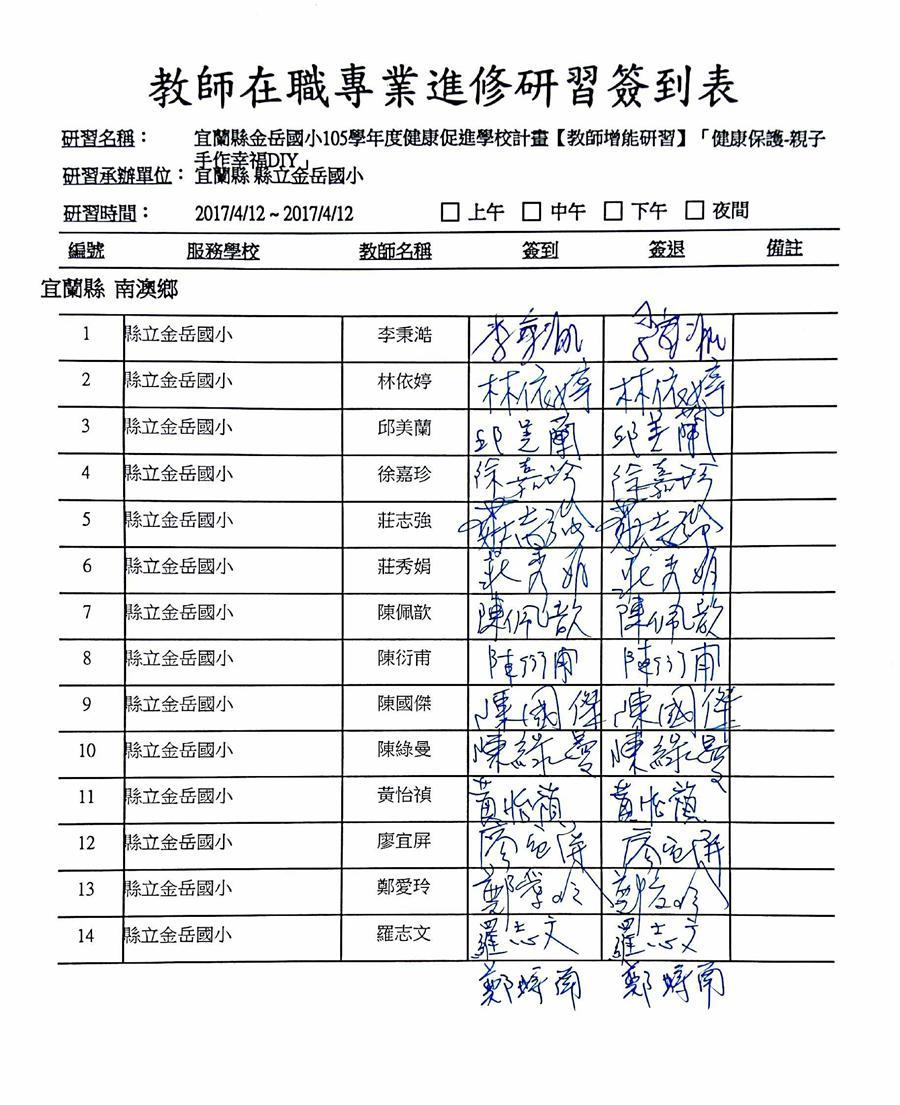 教師在職專業進修研習簽到表
研習名稱： 宜蘭縣金岳國小105學年度健康促進學校計畫【教師增能研習】「健康保護-親子
手作幸福DIY」
研習承辦單位： 宜蘭縣 縣立金岳國小
研習時間： 2017/4/12 ~ 2017/4/12 □ 上午 □ 中午 □ 下午 □ 夜間
編號 服務學校 教師名稱 簽到 簽退 備註
宜蘭縣 南澳鄉
1 縣立金岳國小 李秉澔
2 縣立金岳國小 林依婷 林依婷 林依婷
3 縣立金岳國小 邱美蘭 邱美蘭 邱美蘭
4 縣立金岳國小 徐嘉珍 徐嘉珍 徐嘉珍
5 縣立金岳國小 莊志強 莊志強 莊志強
6 縣立金岳國小 莊秀娟 莊秀娟 莊秀娟
7 縣立金岳國小 陳佩歆 陳佩歆 陳佩歆
8 縣立金岳國小 陳衍甫 陳衍甫 陳衍甫
9 縣立金岳國小 陳國傑 陳國傑 陳國傑
10 縣立金岳國小 陳綠曼 陳綠曼 陳綠曼
11 縣立金岳國小 黃怡禎 黃怡禎 黃怡禎
12 縣立金岳國小 廖宜屏 廖宜屏 廖宜屏
13 縣立金岳國小 鄭愛玲 鄭愛玲 鄭愛玲
14 縣立金岳國小 羅志文 羅志文 羅志文